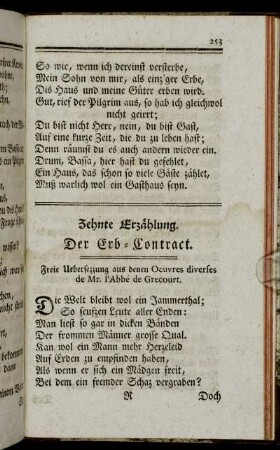 253
So wie, wenn ich dereinst versterbe,
Mein Sohn von mir, als einz'ger Erbe,
Dis Haus und meine Güter erben wird.
Gut, rief der Pilgrim aus, so hab ich gleichwol
nicht geirrt;
Du bist nicht Herr, nein, du bist Gast,
Auf eine kurze Zeit, die du zu leben hast;
Denn räumst du es auch andern wieder ein.
Drum, Bassa, hier hast du gefehlet,
Ein Haus, das schon so viele Gäste zählet,
Muß warlich wol ein Gasthaus seyn.
Zehnte Erzählung.
Der Erb-Contract.
Freie Uebersetzung aus denen Oeuvres diverses
de Mr. l'Abbé de Grecourt.
Die Welt bleibt wol ein Jammerthal;
So seufzen Leute aller Enden:
Man liest so gar in dicken Bänden
Der frommsten Männer grosse Qual.
Kan wol ein Mann mehr Herzeleid
Auf Erden zu empfinden haben,
Als wenn er sich ein Mädgen freit,
Bei dem ein fremder Schaz vergraben?
R Doch